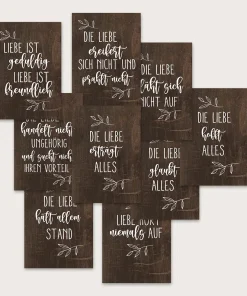 LIEBE IST
geduldig
LIEBE IST
freundlich
DIE LIEBE
ereifert
SICH NICHT UND
prahlt nicht
DIE LIEBE
bläht sich
NICHT AUF
DIE LIEBE
handelt nicht
UNGEHÖRIG
und sucht nich
IHREN VORTEIL
DIE LIEBE
erträgt
ALLES
DIE LIEBE
hofft
ALLES
DIE LIEBE
glaubt
ALLES
DIE LIEBE
hält allem
STAND
LIEBE HÖRT
niemals AUF